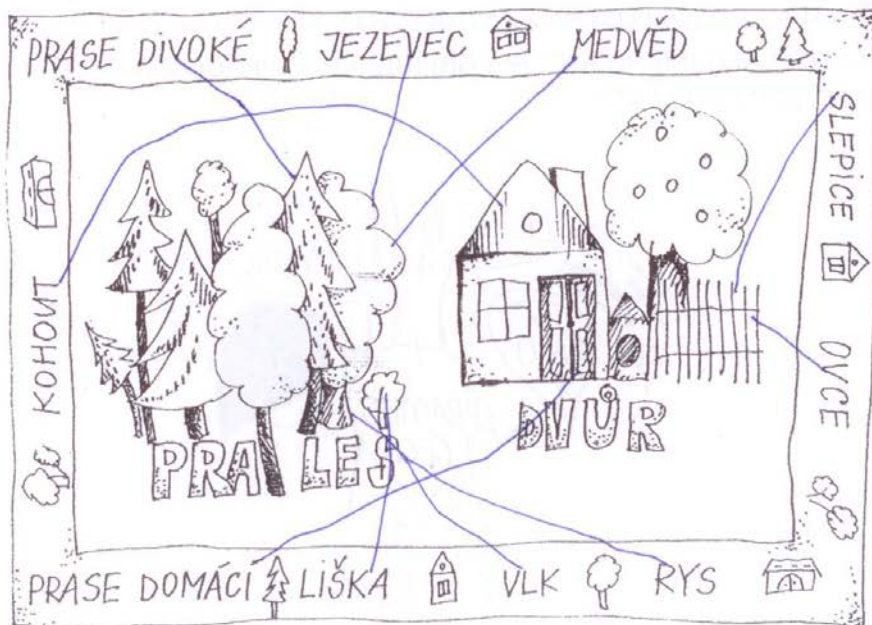 PRASE DIVOKÉ JEZEVEC MEDVĚD
SLEPICE
OVCE
KOHOUT
PRALES
DVŮR
PRASE DOMÁCÍ LIŠKA VLK RYS